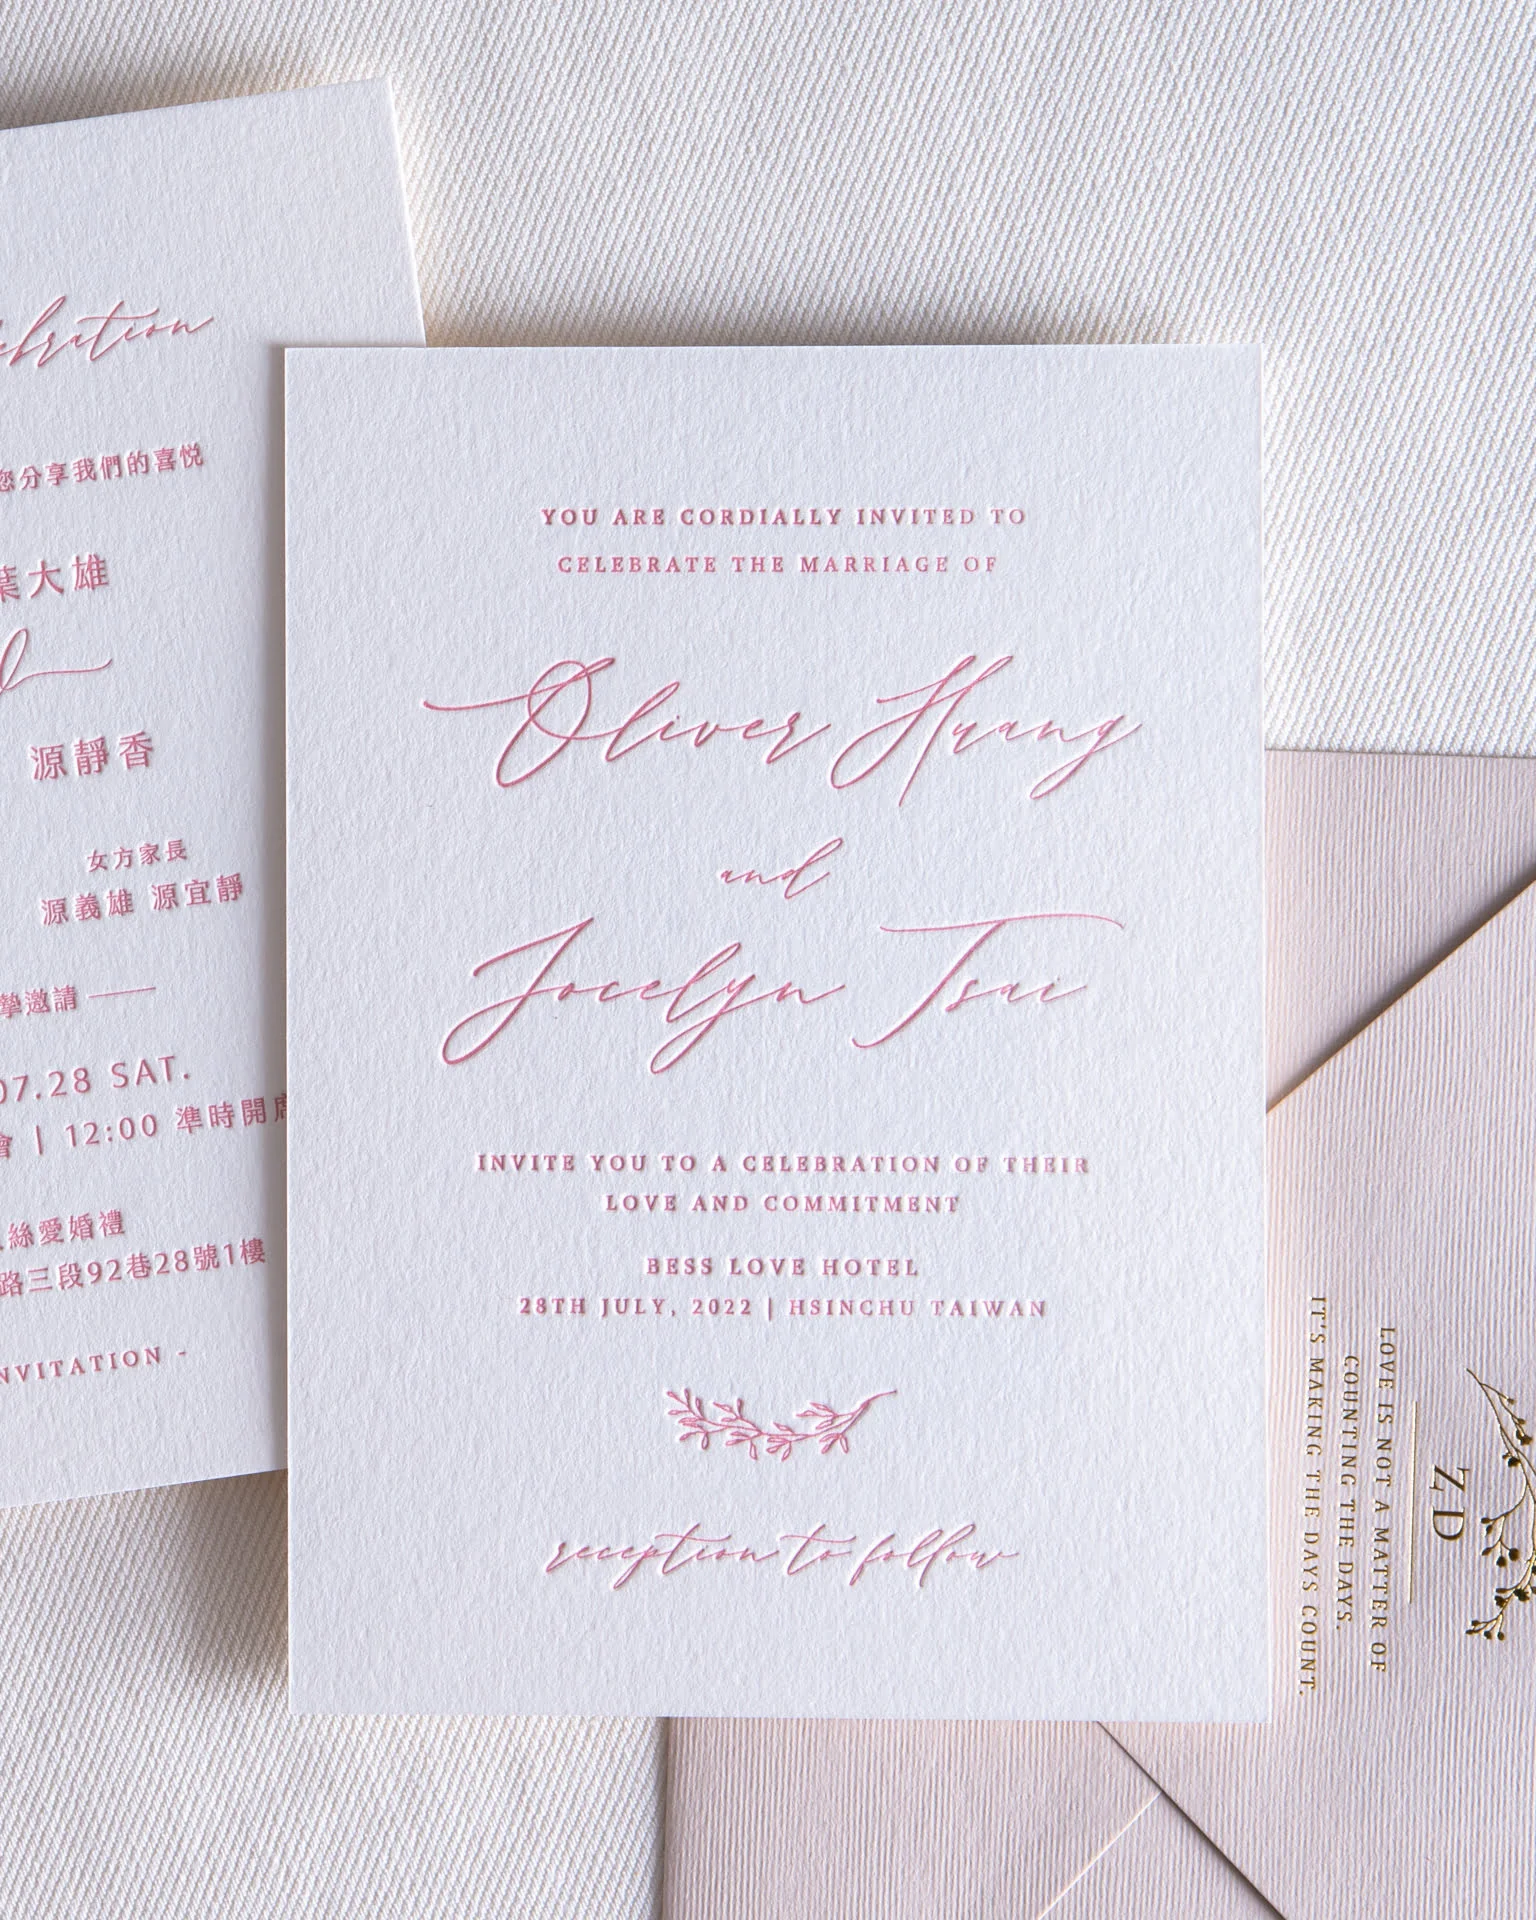 您分享我們的喜悅
葉大雄
源靜香
女方家長
源義雄 源宜靜
摯邀請
07.28 SAT.
會 | 12:00 準時開席
絲愛婚禮
路三段92巷28號1樓
YOU ARE CORDIALLY INVITED TO
CELEBRATE THE MARRIAGE OF
Oliver Huang
and
Jocelyn Tsai
INVITE YOU TO A CELEBRATION OF THEIR
LOVE AND COMMITMENT
BESS LOVE HOTEL
28TH JULY, 2022 | HSINCHU TAIWAN
reception to follow
ZD
LOVE IS NOT A MATTER OF
COUNTING THE DAYS.
IT'S MAKING THE DAYS COUNT.